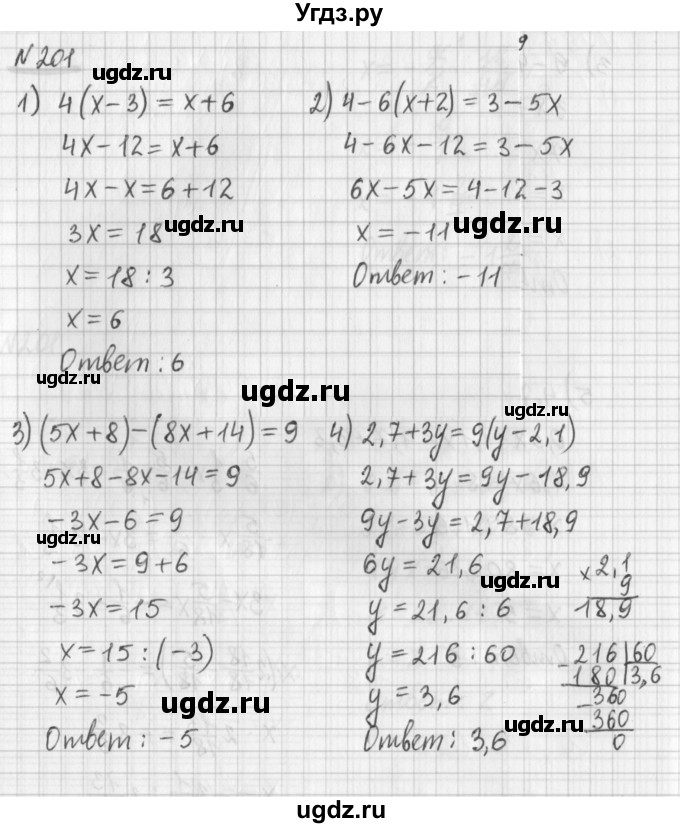 Угдз.ру
№ 201
ugdz.ru
9
1) 4(x-3) = x+6
4x-12 = x+6
4x-x=6+12
3x = 18
ugdz.ru
x=18 : 3
x=6
Ответ: 6
ugdz.ru
2) 4-6(x+2) = 3-5x
ugdz.ru
4-6x-12=3-5x
6x-5x=4-12-3
x = -11
ugdz.ru
Ответ: -11
ugdz.ru
3) (5x+8)-(8x+14)=9
5x+8-8x-14=9
-3x-6=9
ugdz.ru
-3x=9+6
-3x=15
x=15:(-3)
x=-5
ugdz.ru
Ответ: -5
4) 2,7+3y=9(y-2,1)
ugdz.ru
2,7+3y=9y-18,9
9y-3y=2,7+18,9
6y=21,6
ugdz.ru
y=21,6 : 6
y=216 : 60
y=3,6
Ответ: 3,6
ugdz.ru
× 2,1
9
18,9
-216 | 60
180 | 3,6
-360
360
0
ugdz.ru